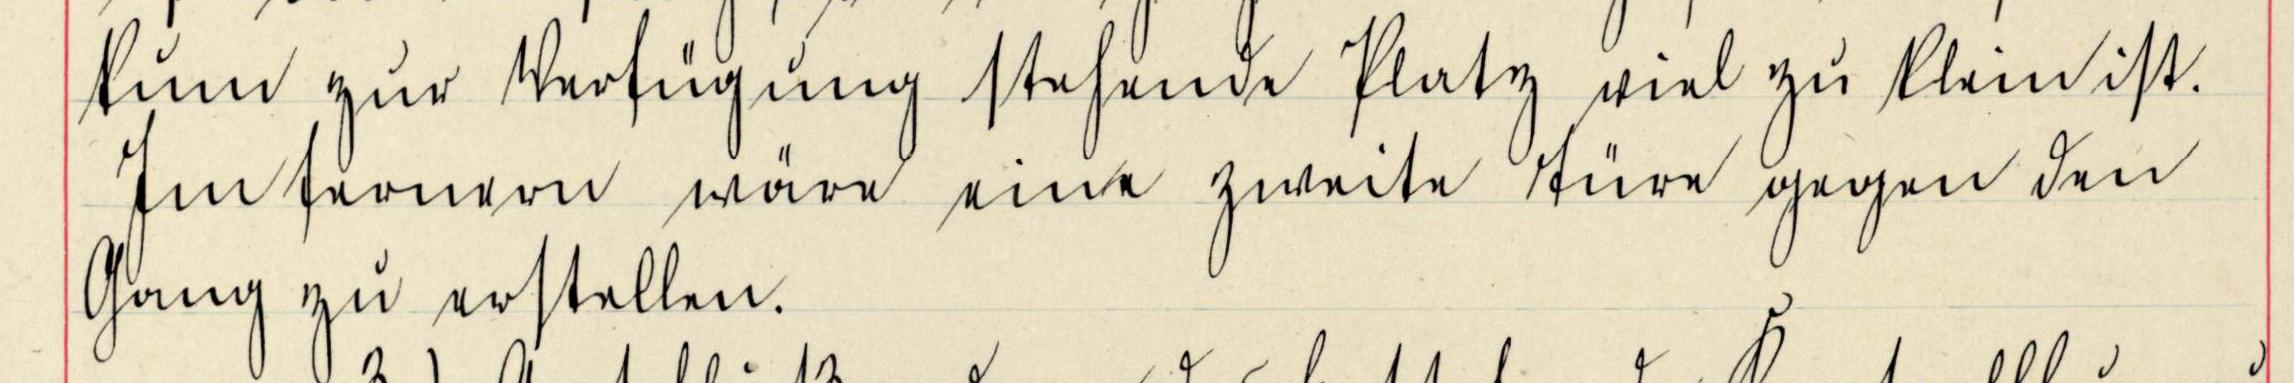 kum zur Verfügung stehende Platz viel zu klein ist.
Im fernern wäre eine zweite Türe gegen den
Gang zu erstellen.